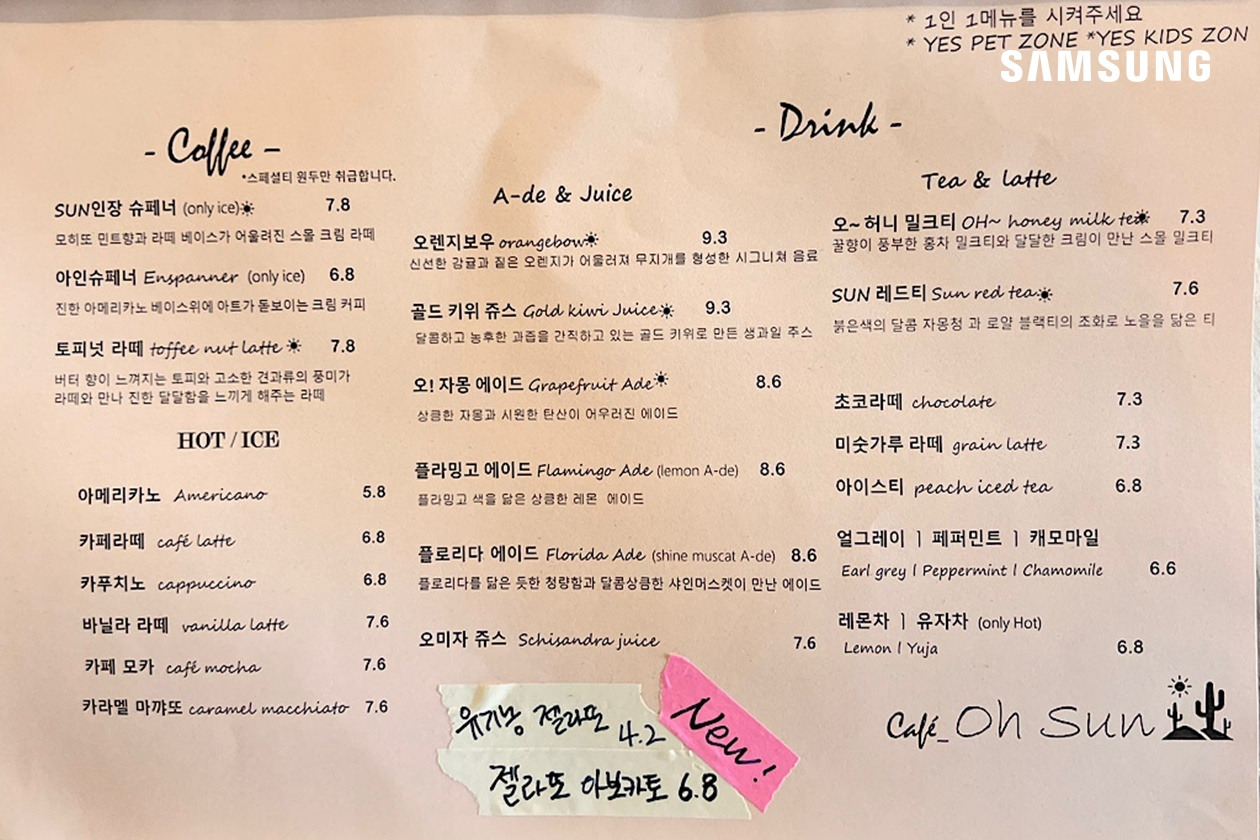 * 1인 1메뉴를 시켜주세요
* YES PET ZONE *YES KIDS ZON
SAMSUNG
- Coffee -
*스페셜티 원두만 취급합니다.
SUN인장 슈페너 (only ice) 7.8
모히또 민트향과 라떼 베이스가 어울려진 스몰 크림 라떼
아인슈페너 Enspanner (only ice) 6.8
진한 아메리카노 베이스위에 아트가 돋보이는 크림 커피
토피넛 라떼 toffee nut latte 7.8
버터 향이 느껴지는 토피와 고소한 견과류의 풍미가
라떼와 만나 진한 달달함을 느끼게 해주는 라떼
HOT / ICE
아메리카노 Americano 5.8
카페라떼 café latte 6.8
카푸치노 cappuccino 6.8
바닐라 라떼 vanilla latte 7.6
카페 모카 café mocha 7.6
카라멜 마꺄또 caramel macchiato 7.6
- Drink -
A-de & Juice
오렌지보우 orangebow 9.3
신선한 감귤과 짙은 오렌지가 어울려져 무지개를 형성한 시그니쳐 음료
골드 키위 쥬스 Gold kiwi Juice 9.3
달콤하고 농후한 과즙을 간직하고 있는 골드 키위로 만든 생과일 주스
오! 자몽 에이드 Grapefruit Ade 8.6
상큼한 자몽과 시원한 탄산이 어우러진 에이드
플라밍고 에이드 Flamingo Ade (lemon A-de) 8.6
플라밍고 색을 닮은 상큼한 레몬 에이드
플로리다 에이드 Florida Ade (shine muscat A-de) 8.6
플로리다를 닮은 듯한 청량함과 달콤상큼한 샤인머스켓이 만난 에이드
오미자 쥬스 Schisandra juice 7.6
유기농 젤라또 4.2
젤라또 아보카토 6.8
New!
Tea & latte
오~ 허니 밀크티 OH~ honey milk tea 7.3
꿀향이 풍부한 홍차 밀크티와 달달한 크림이 만난 스몰 밀크티
SUN 레드티 Sun red tea 7.6
붉은색의 달콤 자몽청 과 로얄 블랙티의 조화로 노을을 닮은 티
초코라떼 chocolate 7.3
미숫가루 라떼 grain latte 7.3
아이스티 peach iced tea 6.8
얼그레이 | 페퍼민트 | 캐모마일
Earl grey l Peppermint l Chamomile 6.6
레몬차 | 유자차 (only Hot)
Lemon l Yuja 6.8
Café_Oh Sun